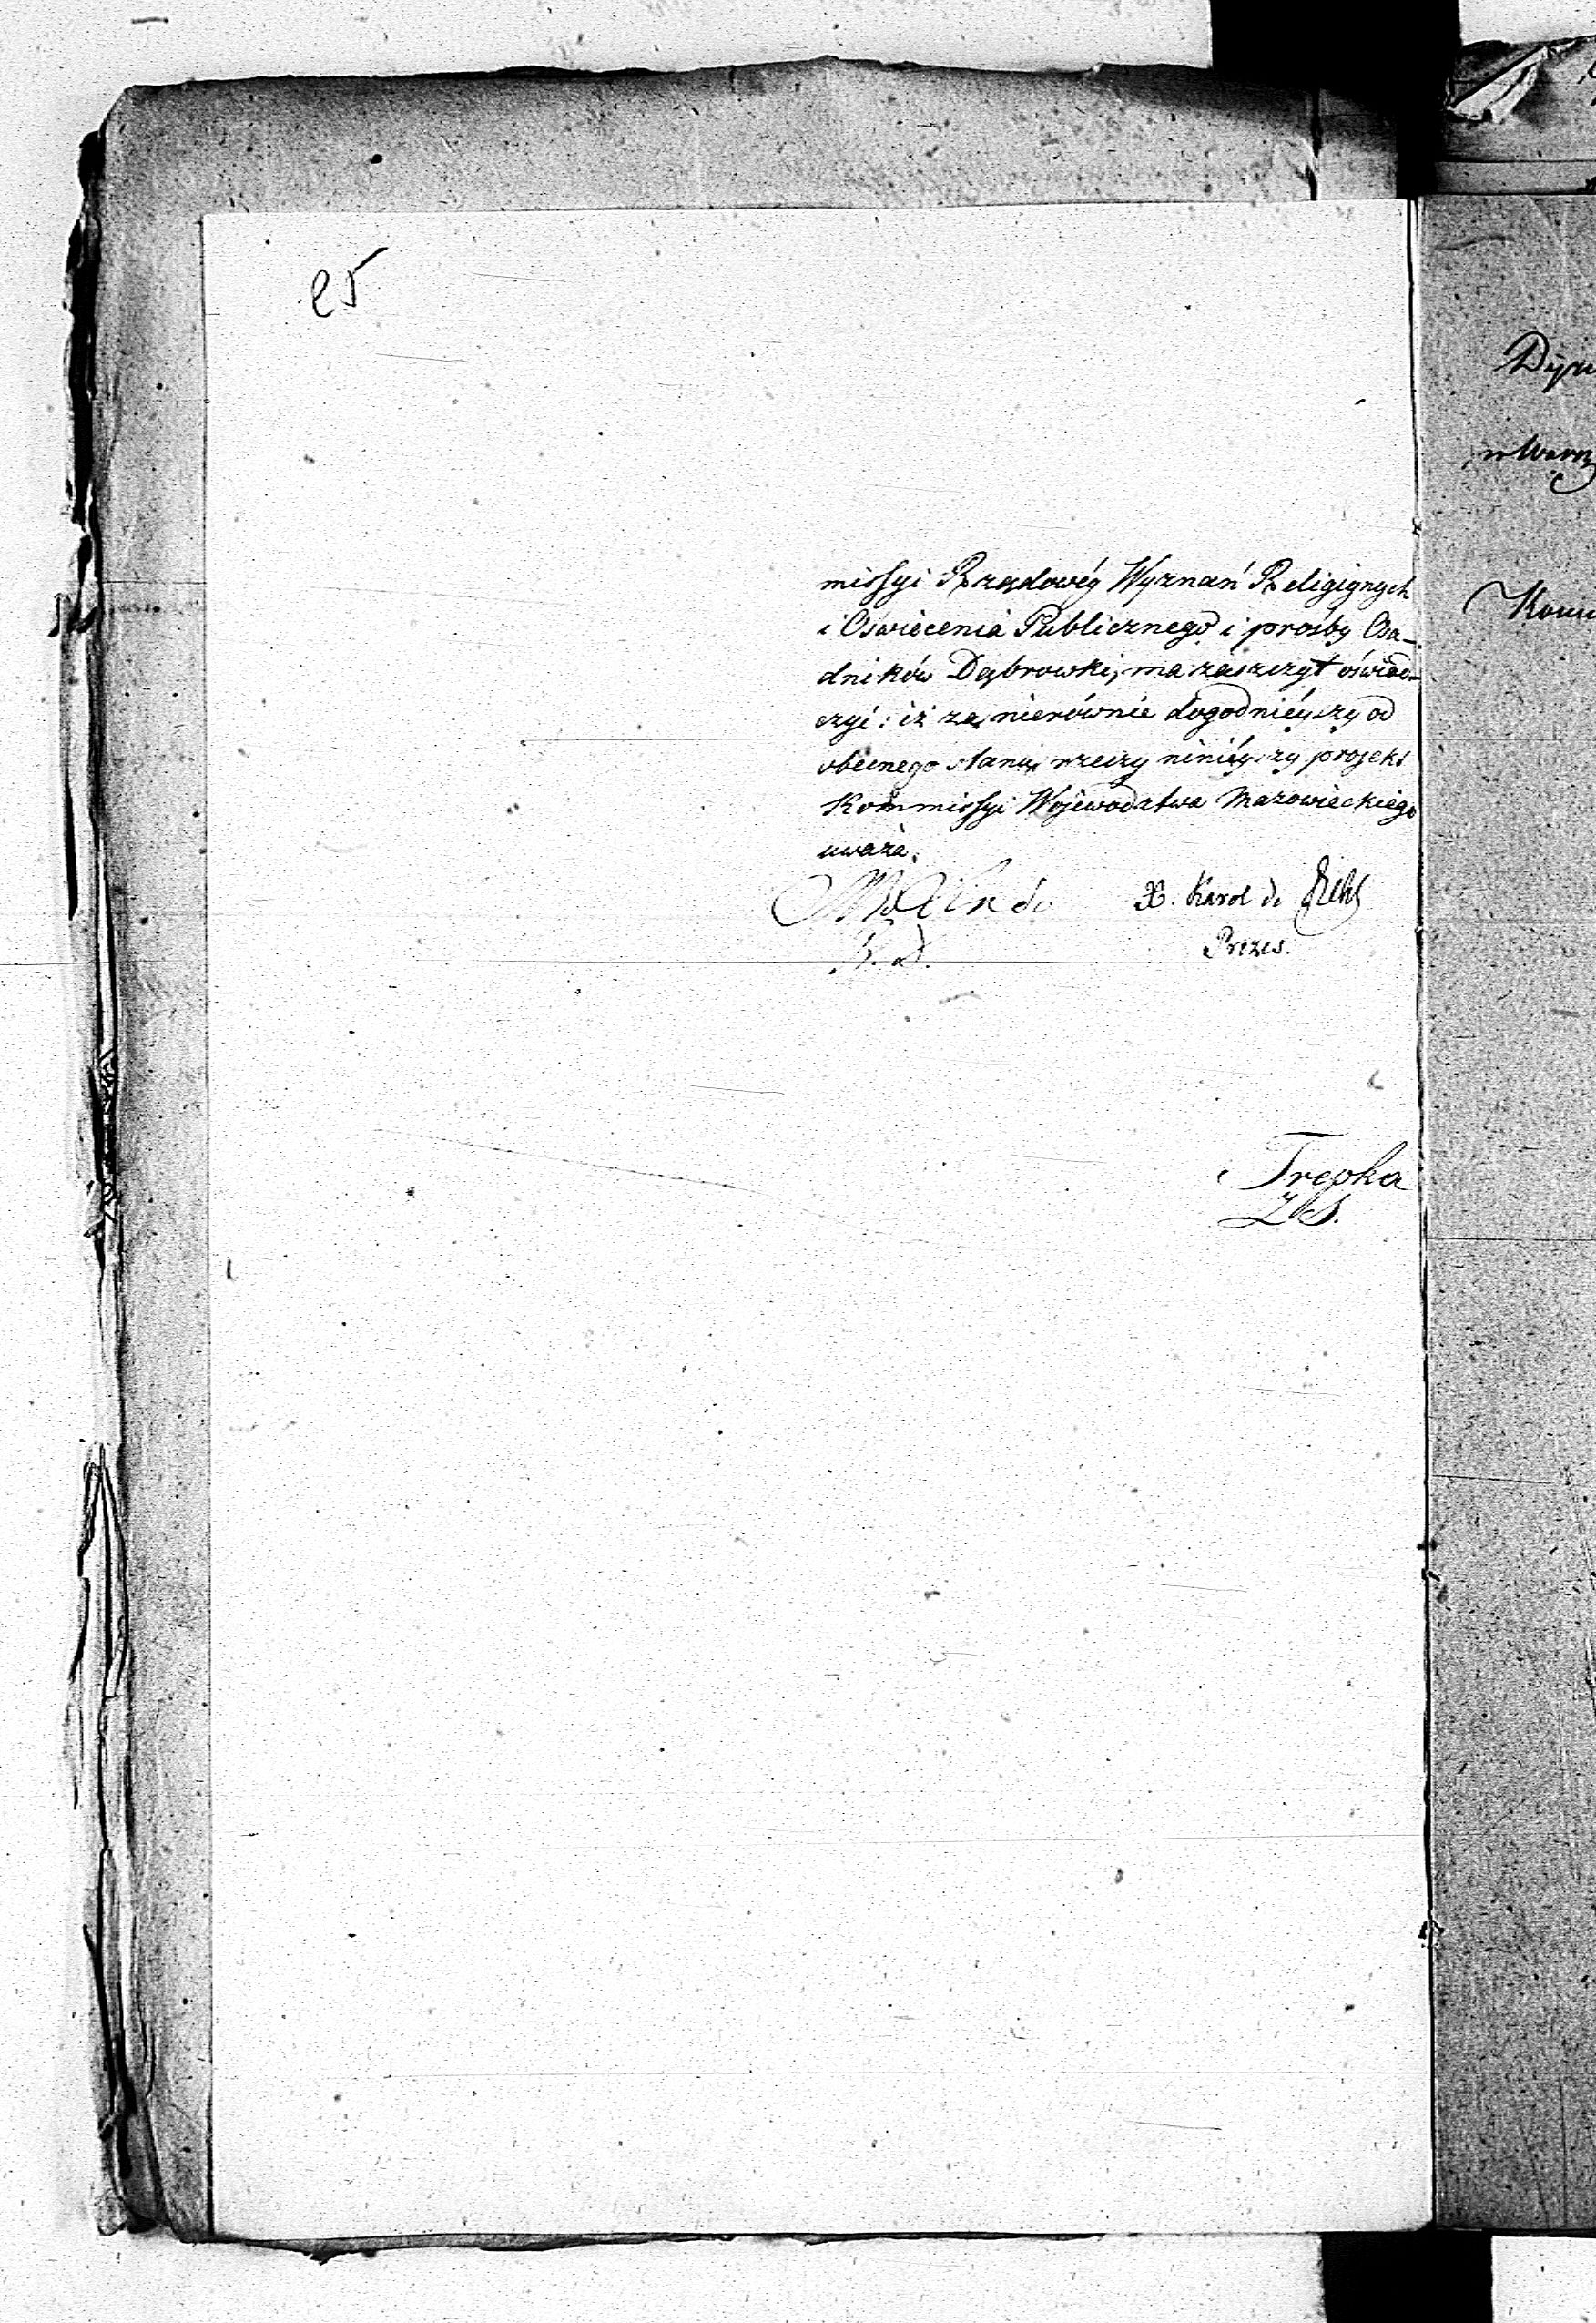 25
missyi Rządowéy Wyznań Religiynych
i Oświecenia Publicznego i prośby Osa-
dników Dąbrowki, ma zaszczyt oświad-
czyć: iż za nierównie dogodnieyszy od
obecnego stanu rzeczy ninieyszy projekt
Kommissyi Województwa Mazowieckiego
uważa.
X. Karol de
Prezes.
Trepka